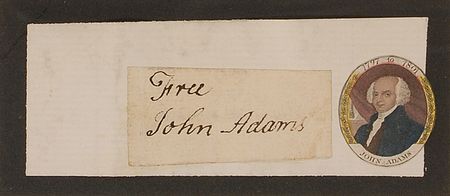 Free
John Adams
1797 to 1801
JOHN ADAMS